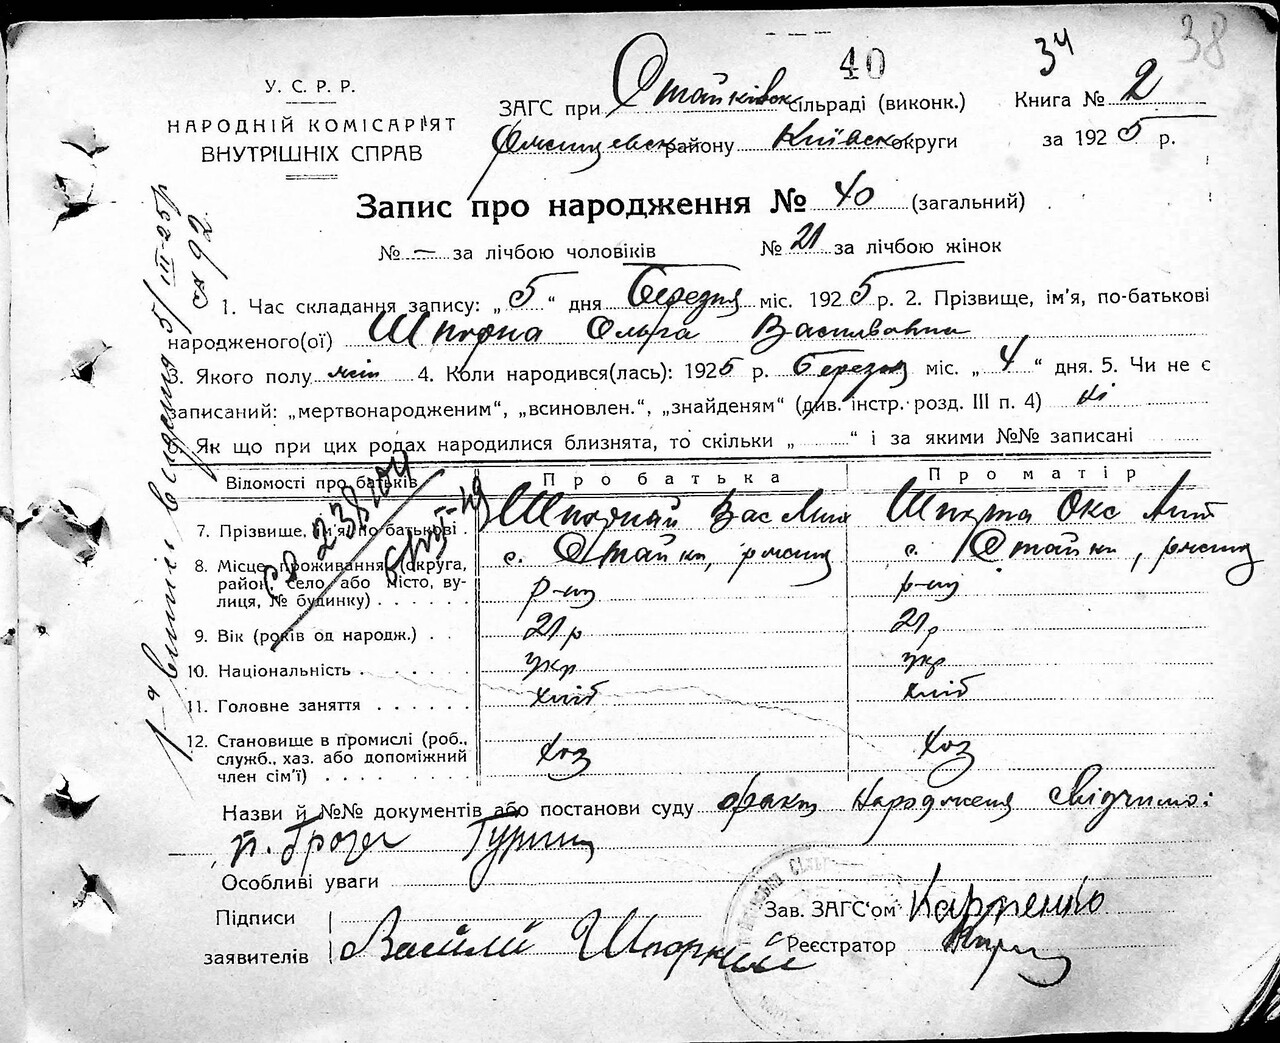 40 34 38
У. С. Р. Р.
НАРОДНІЙ КОМІСАРІЯТ
ВНУТРІШНІХ СПРАВ
ЗАГС при Стайківськ сільраді (виконк.) Книга № 2
району Київськ округи за 1925 р.
Запис про народження № 40 (загальний)
№ — за лічбою чоловіків № 21 за лічбою жінок
1. Час складання запису: „5“ дня Березня міс. 1925 р. 2. Прізвище, ім'я, по-батькові
народженого(ої) Шпорна Ольга Василівна
3. Якого полу жін 4. Коли народився(лась): 1925 р. Березня міс. „4“ дня. 5. Чи не є
записаний: „мертвонародженим“, „всиновлен.“, „знайденям“ (див. інстр. розд. III п. 4) ні
6. Як що при цих родах народилися близнята, то скільки „ “ і за якими №№ записані
Відомості про батьків Про батька Про матір
7. Прізвище, ім'я, по батькові Шпорний Вас Шпорна Окс
8. Місце проживання (округа, район, село або місто, вулиця, № будинку) с. Стайки, р-ну с. Стайки, р-ну
9. Вік (років од народж.) 21 р 21 р
10. Національність укр укр
11. Головне заняття хліб хліб
12. Становище в промислі (роб., служб., хаз. або допоміжний член сім'ї) хоз хоз
Назви й №№ документів або постанови суду факт народженя свідчимо:
Особливі уваги
Підписи
заявителів Василій Шпорний
Зав. ЗАГС'ом Карпенко
Реєстратор